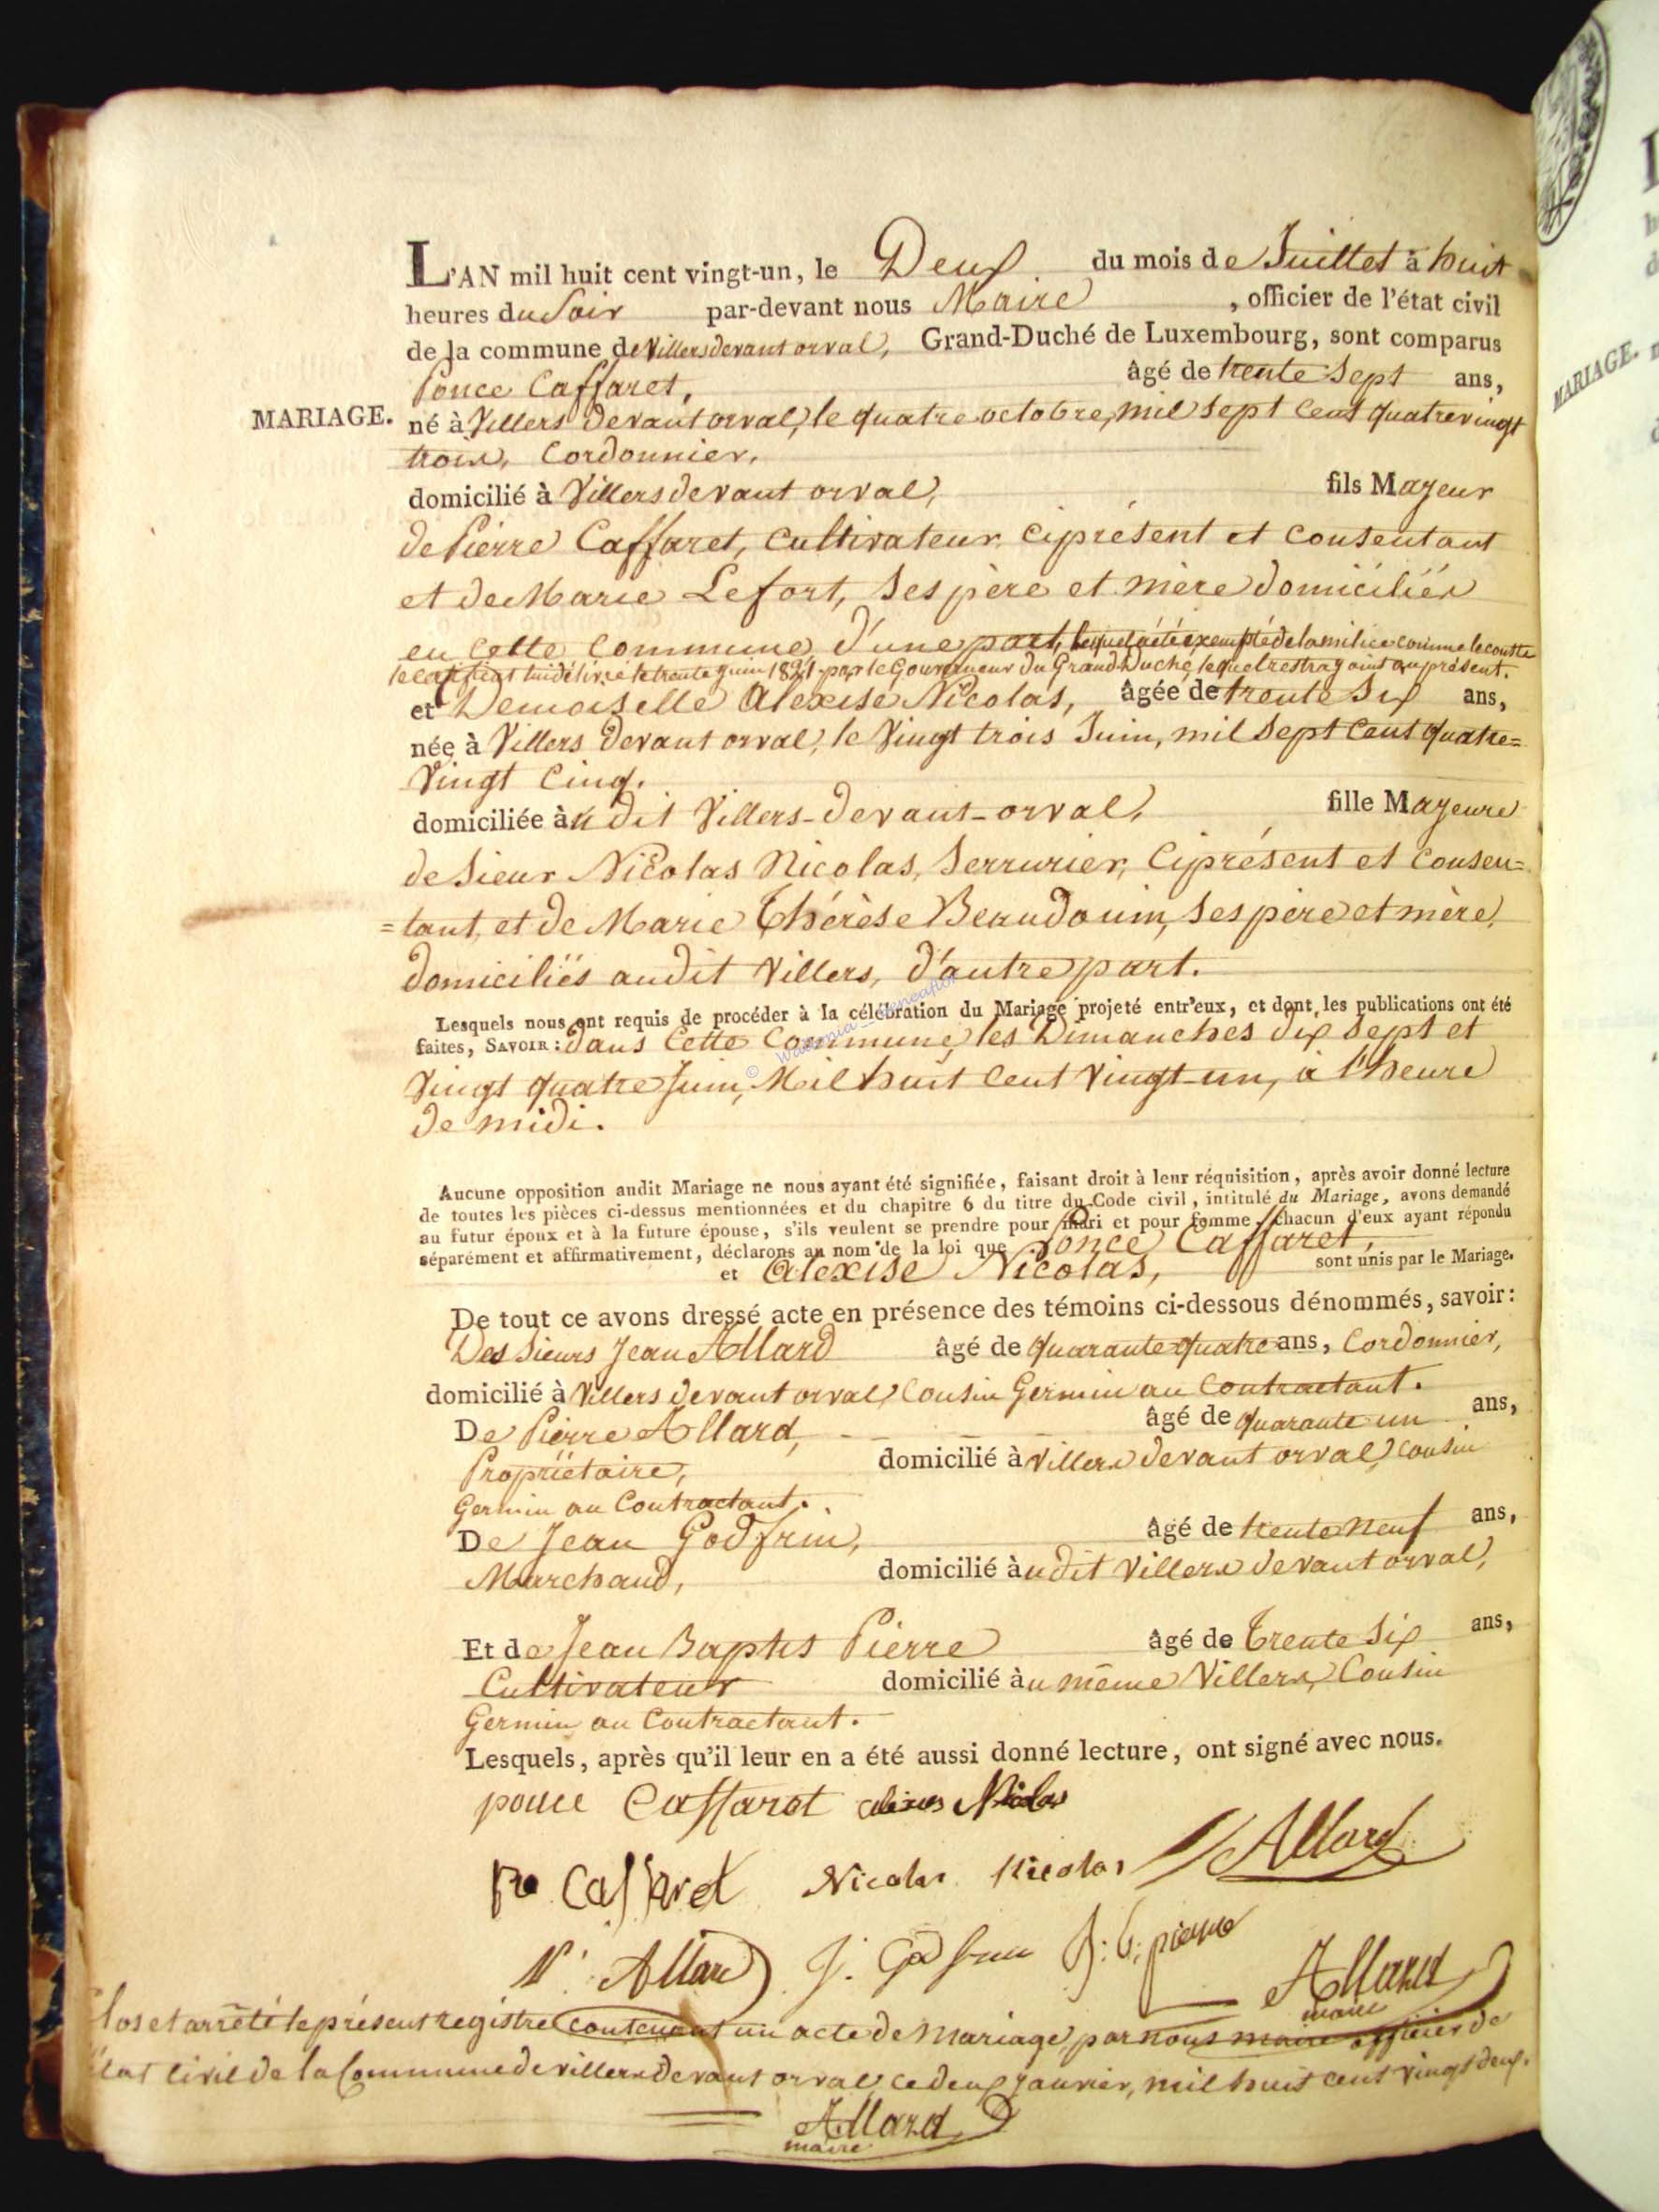 L'AN mil huit cent vingt-un, le Deux du mois de Juillet à huit
heures du Soir par-devant nous Maire, officier de l'état civil
de la commune de Villers devant orval, Grand-Duché de Luxembourg, sont comparus
Ponce Caffaret, âgé de trente Sept ans,
MARIAGE. né à Villers devant orval, le quatre octobre, mil Sept Cent quatrevingt
trois, Cordonnier,
domicilié à Villers devant orval, fils Majeur
de Pierre Caffaret, Cultivateur ciprésent et Consentant
et de Marie Lefort, Ses père et mère domiciliés
en cette Commune d'une part, lequel a été exempté de la milice comme le conste
le certificat lui délivré le trente Juin 1821 par le Gouverneur du Grand Duché, lequel restra joint au présent.
et Demoiselle Alexise Nicolas, âgée de trente Six ans,
née à Villers Devant orval, le Vingt trois Juin, mil Sept Cent quatre=
Vingt Cinq.
domiciliée àu dit Villers-devant-orval, fille Majeure
de Sieur Nicolas Nicolas, Serrurier, Ciprésent et Consen=
=tant, et de Marie Thérèse Beaudouin, Ses père et mère,
domiciliés audit Villers, d'autre part.
Lesquels nous ont requis de procéder à la célébration du Mariage projeté entr'eux, et dont les publications ont été
faites, SAVOIR: dans Cette Commune, les Dimanches dix Sept et
Vingt quatre Juin, Mil huit Cent Vingt-un, à l'heure
de midi.
Aucune opposition audit Mariage ne nous ayant été signifiée, faisant droit à leur réquisition, après avoir donné lecture
de toutes les pièces ci-dessus mentionnées et du chapitre 6 du titre du Code civil, intitulé du Mariage, avons demandé
au futur époux et à la future épouse, s'ils veulent se prendre pour mari et pour femme, chacun d'eux ayant répondu
séparément et affirmativement, déclarons au nom de la loi que Ponce Caffaret,
et Alexise Nicolas, sont unis par le Mariage.
De tout ce avons dressé acte en présence des témoins ci-dessous dénommés, savoir:
Des Sieurs Jean Allard âgé de quarante quatre ans, Cordonnier,
domicilié à Villers devant orval, Cousin Germin au Contractant.
De Pierre Allard, âgé de quarante un ans,
Propriétaire, domicilié à Villers devant orval, Cousin
Germin au Contractant.
De Jean Godfrin, âgé de trente neuf ans,
Marchand, domicilié àudit Villers devant orval,
Et de Jean Baptis Pierre âgé de Trente Six ans,
Cultivateur domicilié àu même Villers, Cousin
Germin au Contractant.
Lesquels, après qu'il leur en a été aussi donné lecture, ont signé avec nous.
ponce Caffarat Nicolas
Caffaret Nicolas Nicolas Allard
Allard J. Godfrin J: b: pierre
Allard
maire
Clos et arrêté le présent registre contenant un acte de Mariage, par nous maire officier de
l'état Civil de la Commune de villers devant orval, ce deux Janvier, mil huit cent vingt deux.
Allard
maire
MARIAGE.